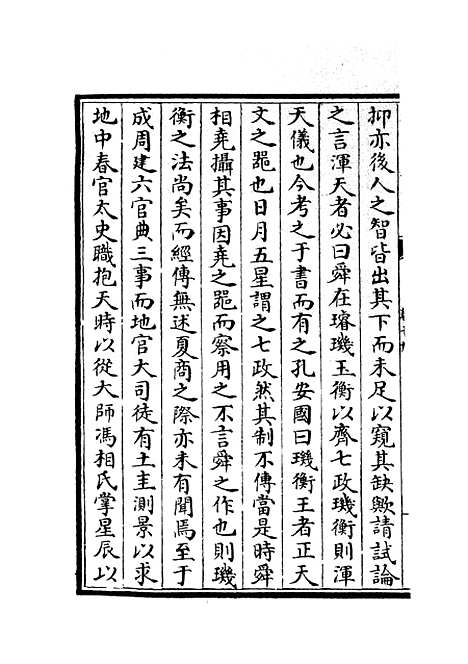 抑亦後人之智皆出其下而未足以窺其缺歟請試論
之言渾天者必曰舜在璿璣玉衡以齊七政璣衡則渾
天儀也今考之于書而有之孔安國曰璣衡王者正天
文之噐也日月五星謂之七政然其制不傳當是時舜
相堯攝其事因堯之噐而察用之不言舜之作也則璣
衡之法尚矣而經傳無述夏商之際亦未有聞焉至于
成周建六官典三事而地官大司徒有土圭測景以求
地中春官太史職抱天時以從大師馮相氏掌星辰以